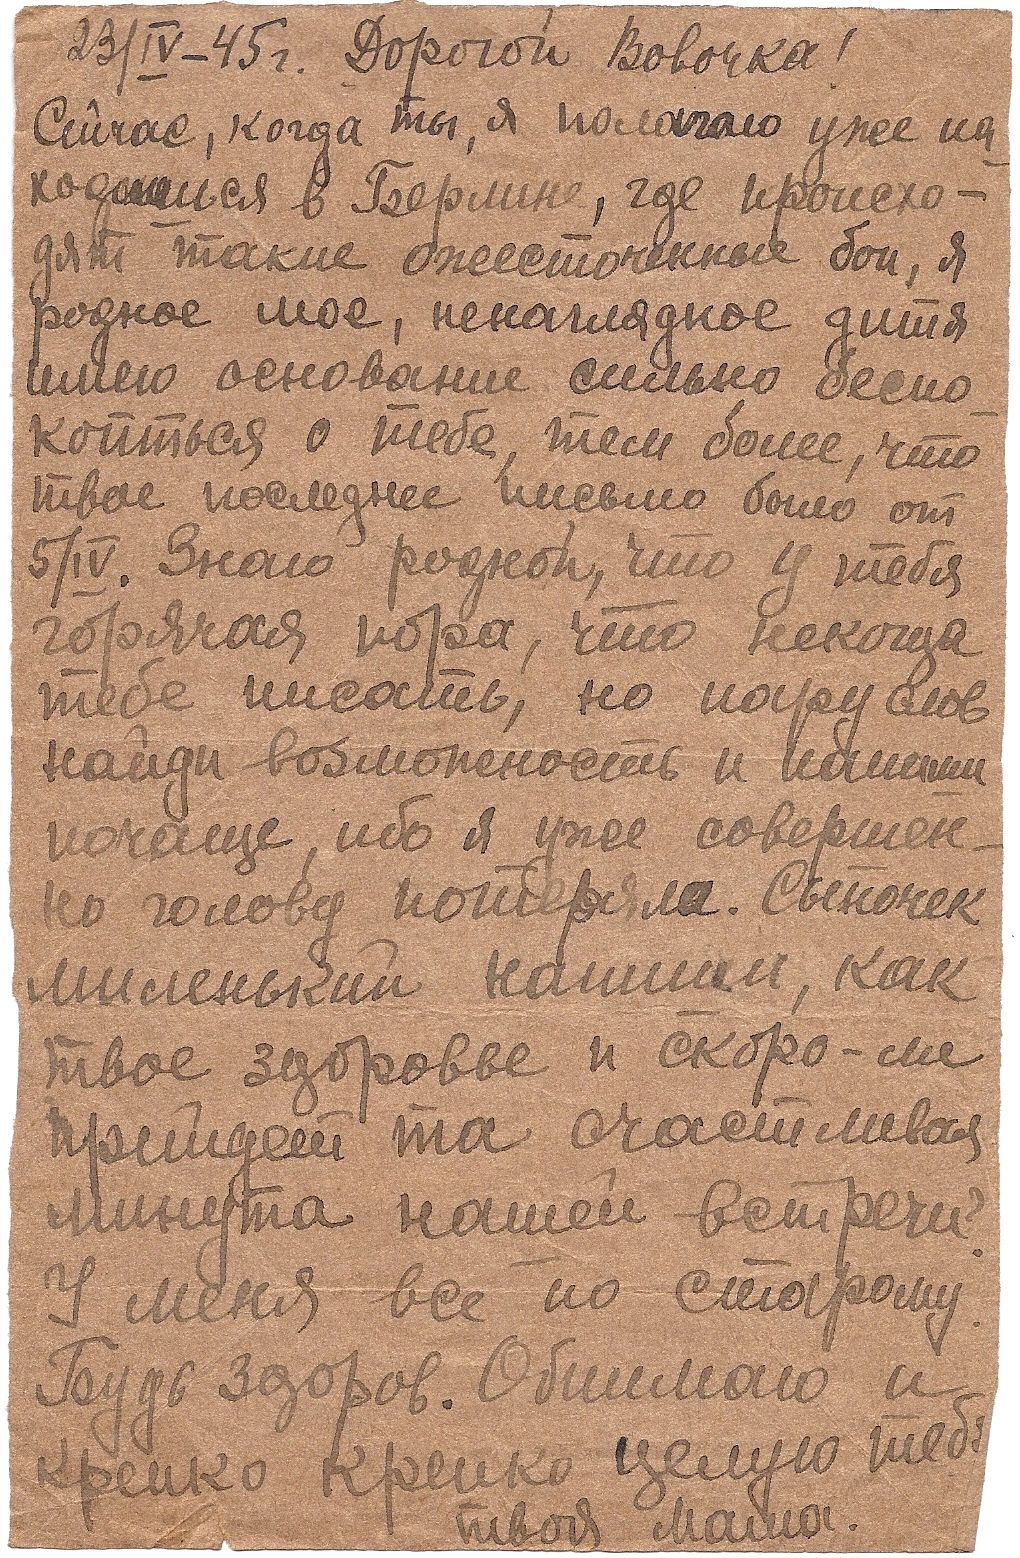 23/IV-45г. Дорогой Вовочка!
Сейчас, когда ты, я полагаю уже на-
ходишься в Берлине, где происхо-
дят такие ожесточенные бои, я
родное мое, ненаглядное дитя
имею основание сильно беспо
коиться о тебе, тем более, что
твое последнее письмо было от
5/IV. Знаю родной, что у тебя
горячая пора, что некогда
тебе писать, но пару слов
найди возможность и напиши
почаще, ибо я уже совершен-
но голову потеряла. Сыночек
миленький напиши, как
твое здоровье и скоро-ли
прийдет та счастливая
минута нашей встречи?
У меня все по старому.
Будь здоров. Обнимаю и
крепко крепко целую тебя
твоя мама.